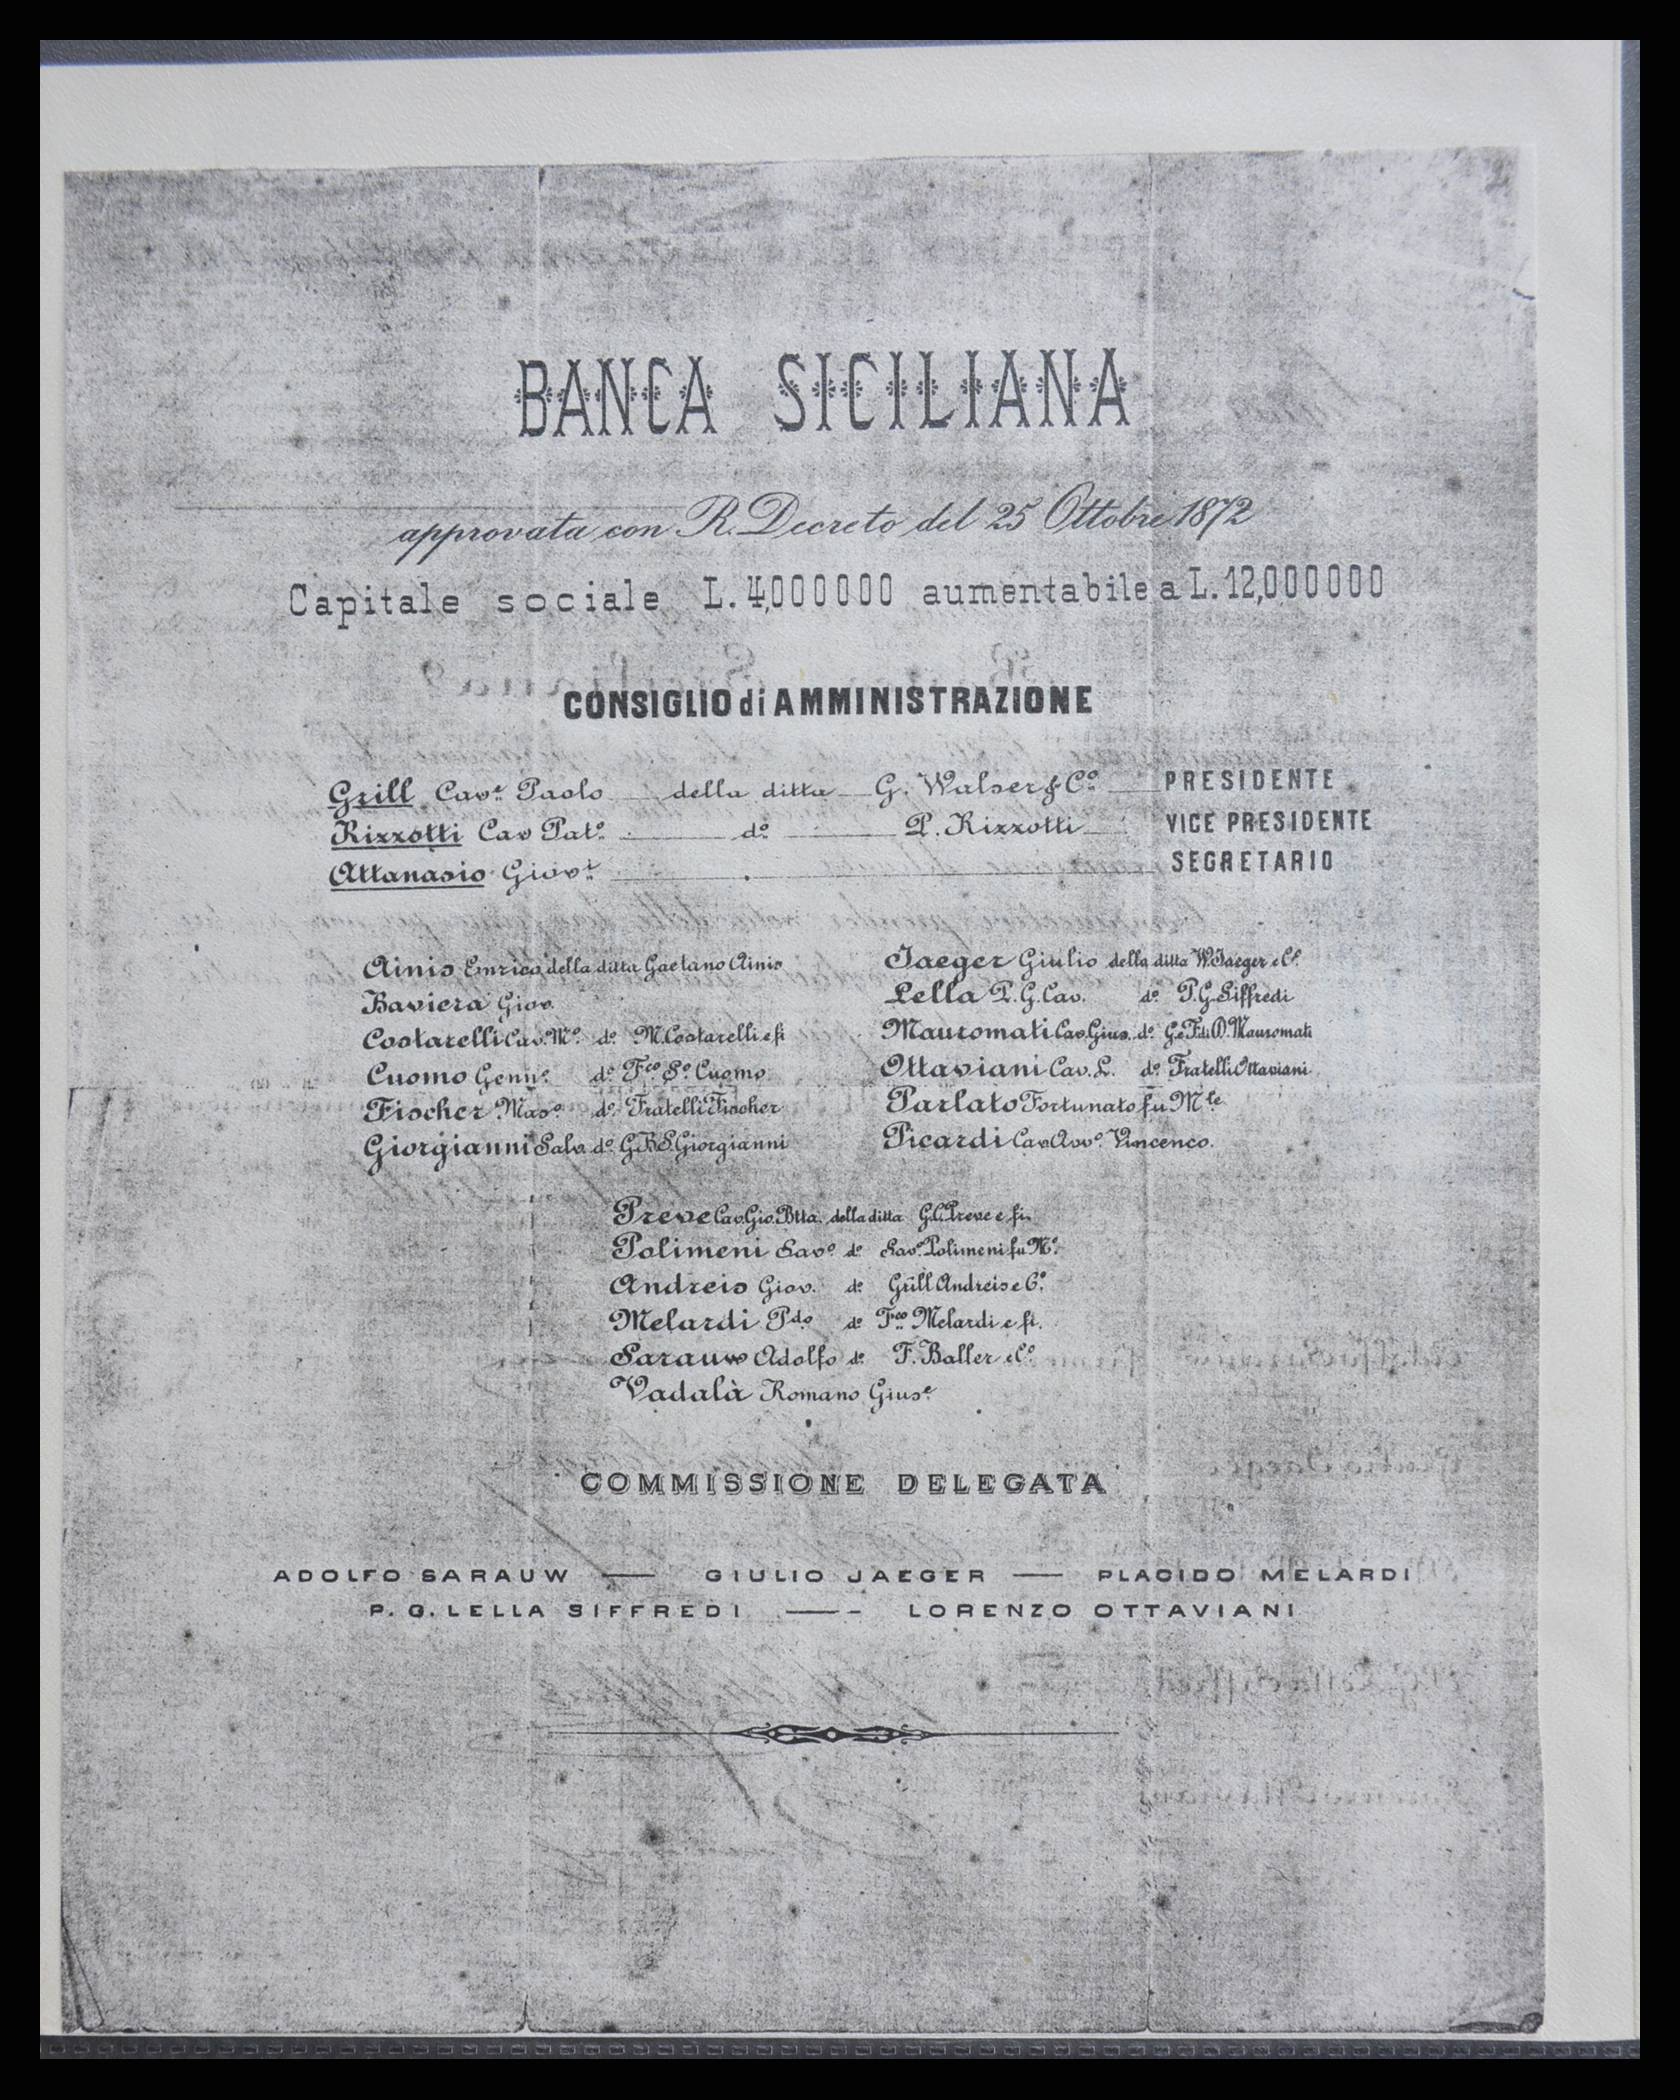 BANCA SICILIANA
approvata con R. Decreto del 25 Ottobre 1872
Capitale sociale L. 4,000000 aumentabile a L. 12,000000
CONSIGLIO di AMMINISTRAZIONE
Grill Cav.e Paolo della ditta G. Walser & C.o PRESIDENTE
Rizzotti Cav Pat.o d.o P. Rizzotti VICE PRESIDENTE
Attanasio Giov.i SEGRETARIO
Ainis Enrico della ditta Gaetano Ainis
Baviera Giov.
Costarelli Cav. M.o d.o M. Costarelli e fi
Cuomo Genn.o d.o F.co S.o Cuomo
Fischer Mas.o d.o Fratelli Fischer
Giorgianni Salv. d.o G.B.S. Giorgianni
Jaeger Giulio della ditta W. Jaeger e C.o
Lella P. G. Cav. d.o P. G. Siffredi
Mauromati Cav. Gius. d.o G. e F. di D. Mauromati
Ottaviani Cav. L. d.o Fratelli Ottaviani
Parlato Fortunato fu M.le
Picardi Cav. Avv.o Vincenco.
Preve Cav. Gio. Btta. della ditta G. C. Preve e fi.
Polimeni Sav.o d.o Sav.o Polimeni fu M.o
Andreis Giov. d.o Grill Andreis e C.o
Melardi P.do d.o F.co Melardi e fi.
Sarauw Adolfo d.o F. Baller e C.o
Vadalà Romano Gius.e
COMMISSIONE DELEGATA
ADOLFO SARAUW — GIULIO JAEGER — PLACIDO MELARDI
P. G. LELLA SIFFREDI — LORENZO OTTAVIANI